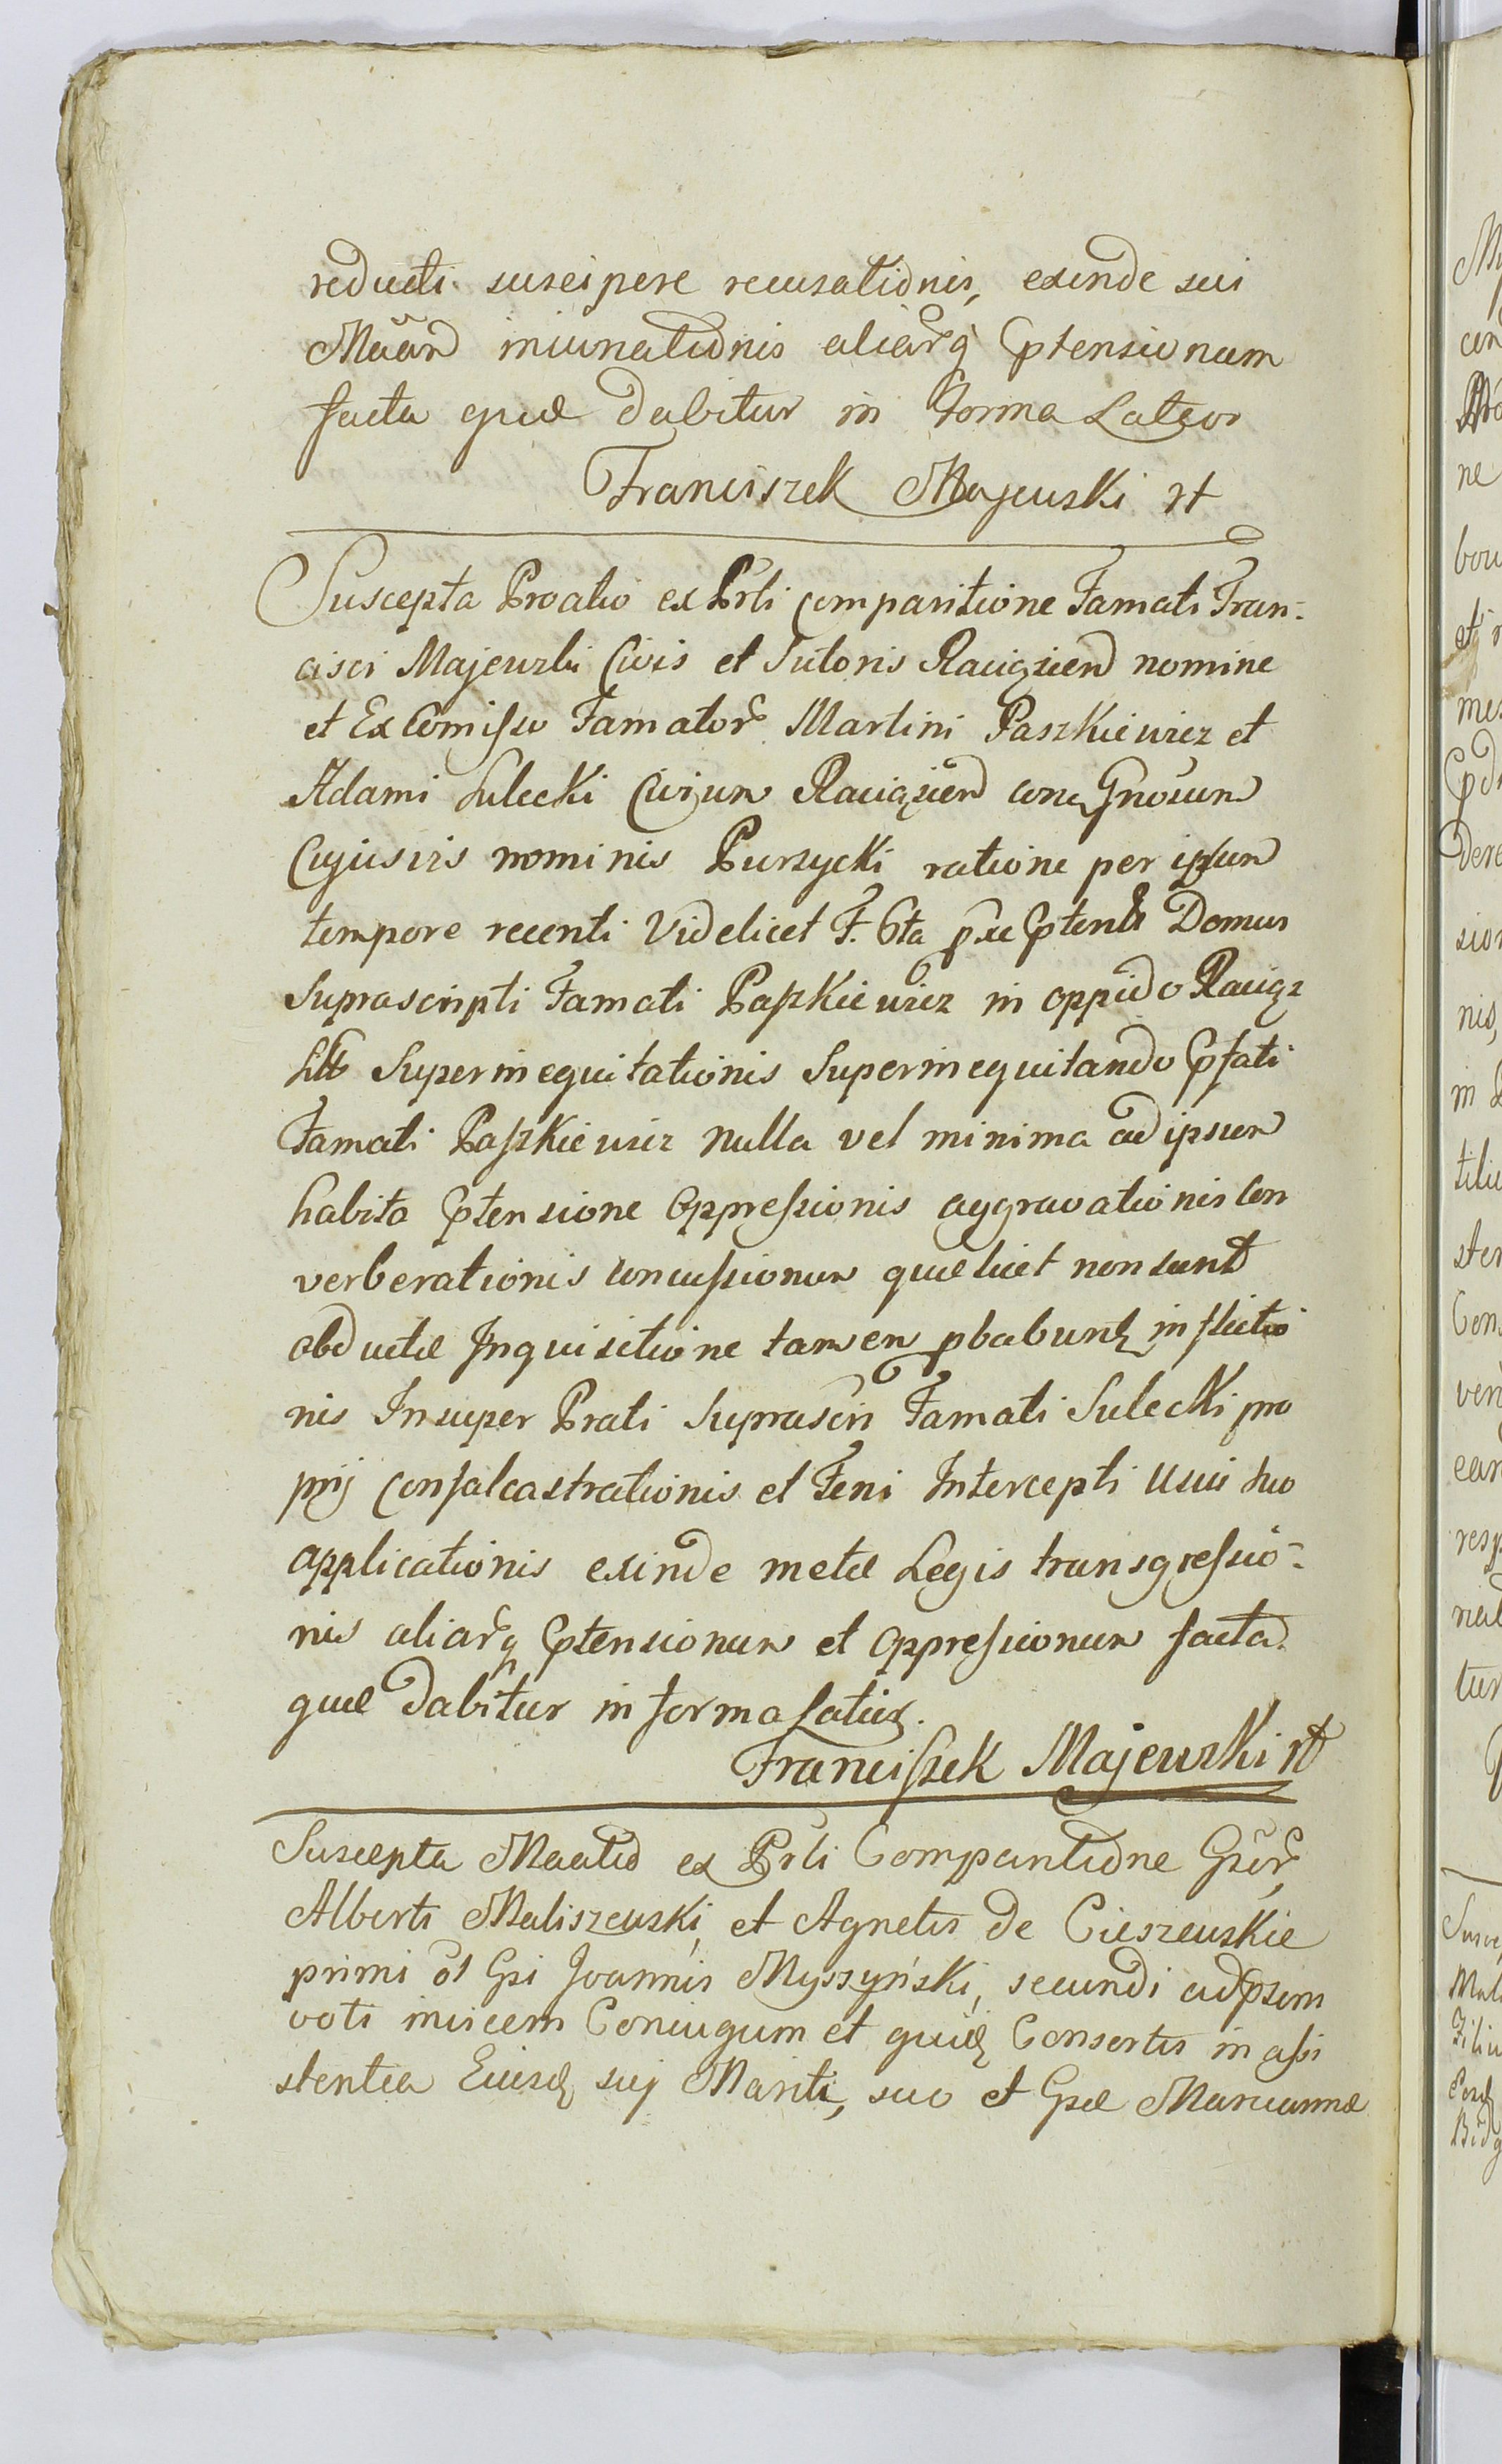 reducti suscipere recusationis, exinde sui
Māān iniunationis aliarq̃ Cptensionum
facta quæ dabitur in Forma Latior
Franciszek Majewski
Suscepta Proatio ex Prli comparitione Famati Fran-
cisci Majewski Civis et Sutoris Raciązien nomine
et Ex Comisso Famator Martini Paszkiewicz et
Adami Sulecki Civium Raciązien con Gnosum
Cujusvis nominis Burzycki ratione per ipsum
tempore recenti Videlicet F. 6ta Domus
Suprascripti Famati Paszkiewicz in oppido Raciąz
Superinequitationis Superinequitando Cpfati
Famati Paszkiewicz nulla vel minima ad ipsum
habita Cptensione Oppressionis aggravationis Con
verberationis concussionum quæ licet non sunt
obductæ Inquisitione tamen pbabunt inflictio
nis Insuper Prati Suprascri Famati Sulecki pro
prij Confalcastrationis et Feni Intercepti Usui suo
applicationis exinde metæ Legis transgressio-
nis aliarq Cptensionum et Oppressionum facta
quæ dabitur in forma Latior.
Franciszek Majewski
Suscepta Maatio ex Prli Comparitione Gsor
Alberti Maliszewski, et Agnetis de Cieszewskie
primi ol Gsi Joannis Myszyński, secundi ad psens
voti invicem Coniugum et quid Consortis in assi
stentia Eiusd suj Mariti, suo et Gsæ Mariannæ